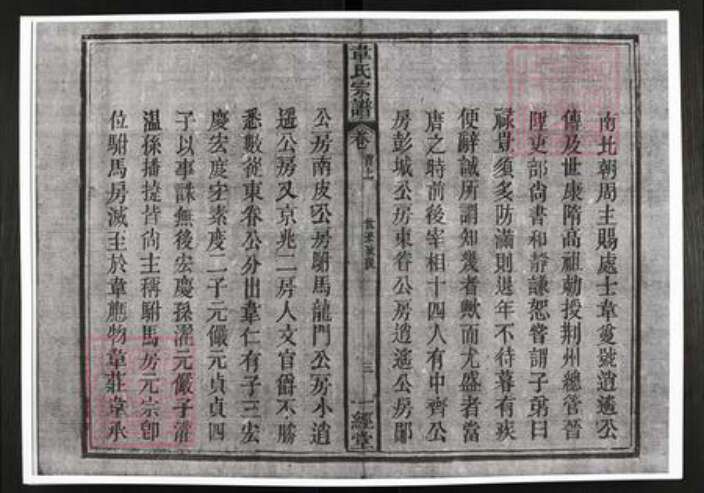 南北朝周主賜處士韋敻號逍遙公
傳及世康隋高祖勅授荆州總管晉
陞吏部尚書和靜謙恕嘗謂子弟曰
祿豈須多防滿則退年不待暮有疾
便辭誠所謂知幾者歟而尤盛者當
唐之時前後宰相十四人有中齊公
房彭城公房東眷公房逍遙公房鄖
韋氏宗譜
卷首上
三
一經堂
公房南皮公房駙馬龍門公房小逍
遥公房又京兆二房人文官爵不勝
悉數從東眷公分出韋仁有子三宏
慶宏度宏素度二子元儼元貞貞四
子以事誅無後宏慶孫濯元儼子濬
溫孫播捷皆尚主稱駙馬房元宗卽
位駙馬房滅至於韋應物韋莊韋承